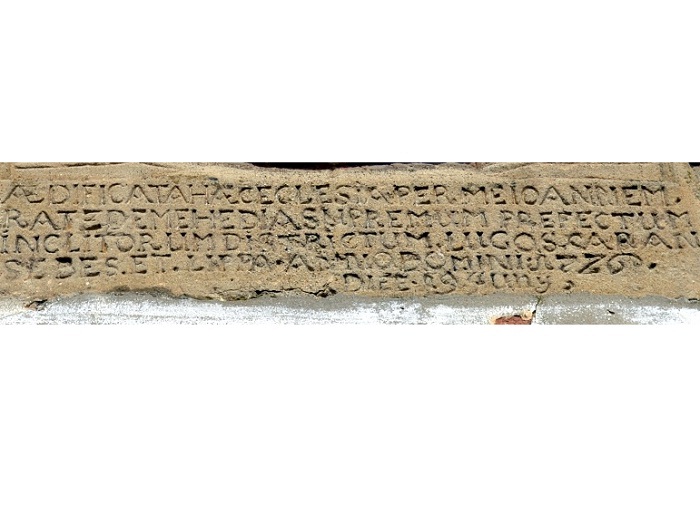 ÆDIFICATA HÆC ECCLESIA PER ME IOANNEM
RATZ DE MEHEDIA SUPREMUM PREFECTUM
INCLITORUM DISTRICTUM. LUGOS. CARAN
SEBES. ET. LIPPA. ANNO DOMINI. 1726.
DIE